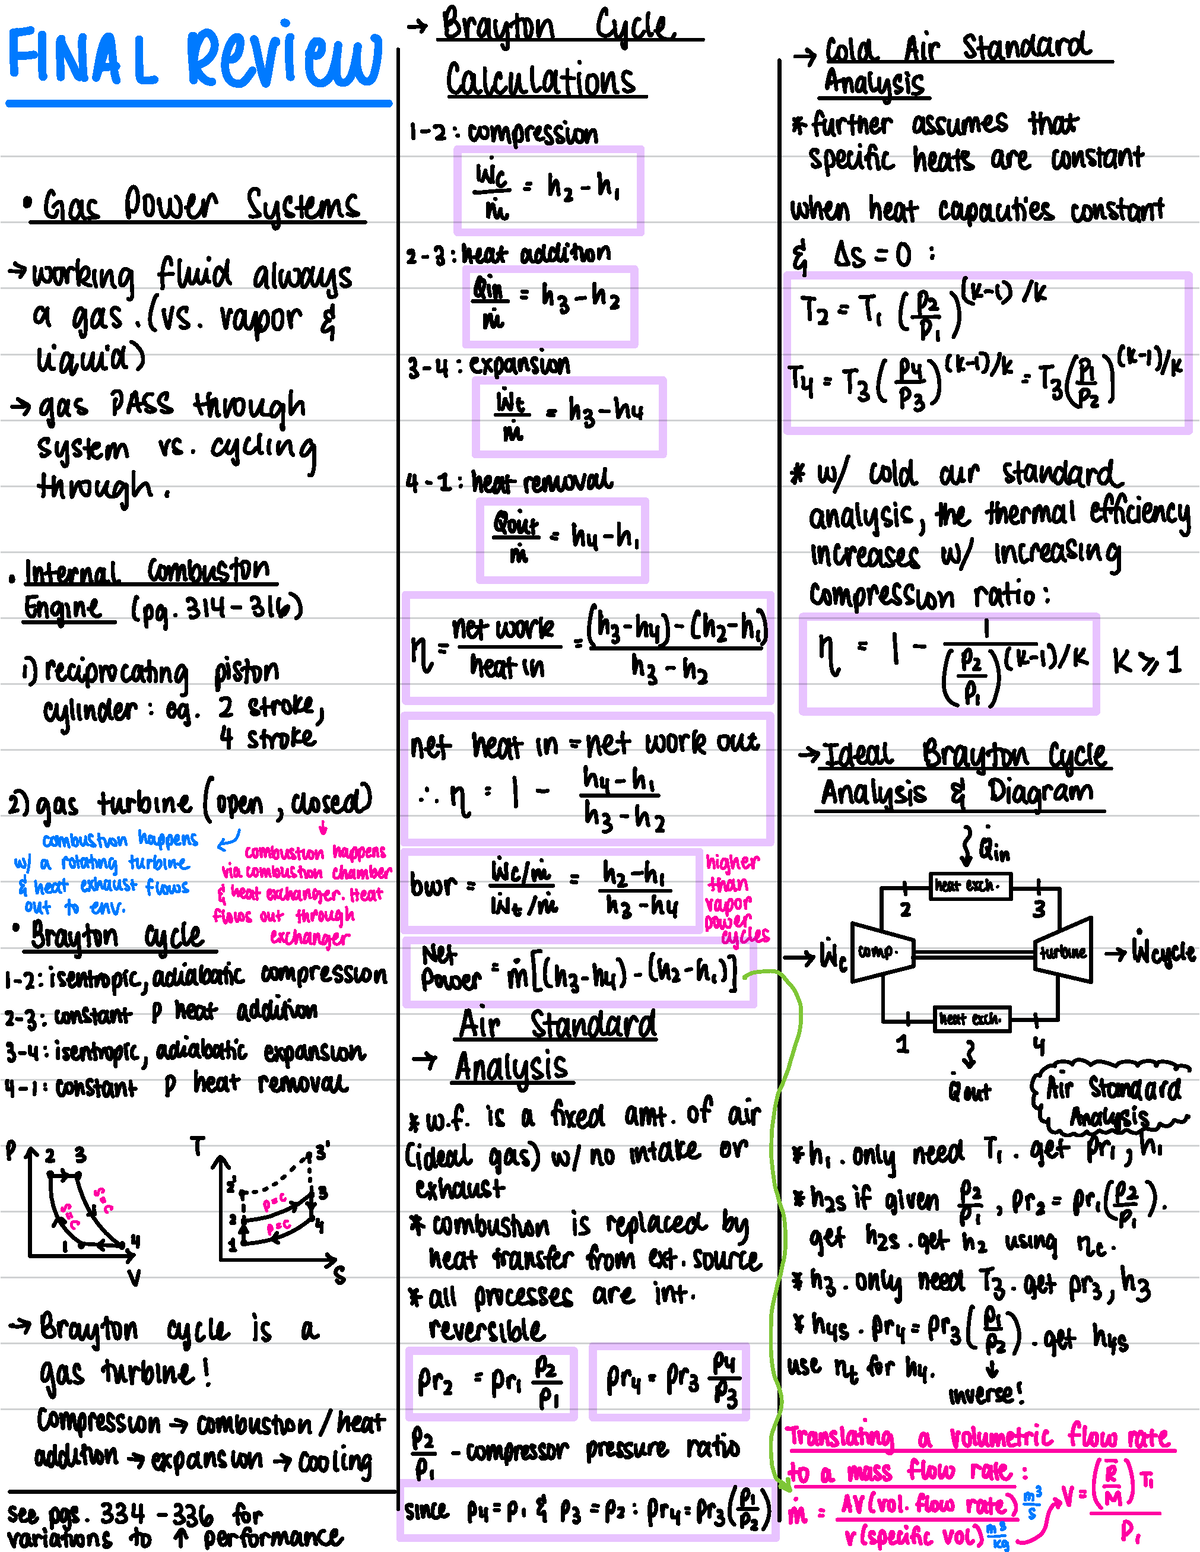 FINAL Review
• Gas Power Systems
→ working fluid always
a gas. (vs. vapor &
liquid)
→ gas PASS through
system vs. cycling
through.
• Internal Combuston
Engine (pg. 314-316)
1) reciprocating piston
cylinder: eg. 2 stroke,
4 stroke
2) gas turbine (open, closed)
combustion happens
w/ a rotating turbine
& heat exhaust flows
out to env.
combustion happens
via combustion chamber
& heat exchanger. Heat
flows out through
exchanger
• Brayton cycle
1-2: isentropic, adiabatic compression
2-3: constant P heat addition
3-4: isentropic, adiabatic expansion
4-1: constant P heat removal
P 2 3 s=c s=c 1 4 V
T 3' 2' 3 p=c 2 p=c 4 1 S
→ Brayton cycle is a
gas turbine!
Compression → combustion / heat
addition → expansion → cooling
see pgs. 334-336 for
variations to ↑ performance
→ Brayton Cycle
Calculations
1-2: compression
Ẇc/ṁ = h₂-h₁
2-3: heat addition
Q̇in/ṁ = h₃-h₂
3-4: expansion
Ẇt/ṁ = h₃-h₄
4-1: heat removal
Q̇out/ṁ = h₄-h₁
η = net work/heat in = (h₃-h₄)-(h₂-h₁)/h₃-h₂
net heat in = net work out
∴ η = 1 - h₄-h₁/h₃-h₂
bwr = Ẇc/ṁ / Ẇt/ṁ = h₂-h₁/h₃-h₄
higher
than
vapor
power
cycles
Net Power = ṁ[(h₃-h₄)-(h₂-h₁)]
Air Standard
→ Analysis
* w.f. is a fixed amt. of air
(ideal gas) w/ no intake or
exhaust
* combustion is replaced by
heat transfer from ext. source
* all processes are int.
reversible
pr₂ = pr₁ P₂/P₁
pr₄ = pr₃ P₄/P₃
P₂/P₁ - compressor pressure ratio
since P₄=P₁ & P₃=P₂: pr₄=pr₃(P₁/P₂)
→ Cold Air Standard
Analysis
* further assumes that
specific heats are constant
when heat capacities constant
& Δs=0:
T₂ = T₁ (P₂/P₁)^(k-1)/k
T₄ = T₃(P₄/P₃)^(k-1)/k = T₃(P₁/P₂)^(k-1)/k
* w/ cold air standard
analysis, the thermal efficiency
increases w/ increasing
compression ratio:
η = 1 - 1/(P₂/P₁)^(k-1)/k k ≥ 1
→ Ideal Brayton Cycle
Analysis & Diagram
Q̇in
heat exch.
2 3
→ Ẇc comp. turbine → Ẇcycle
heat exch.
1 4
Q̇out
Air Standard
Analysis
* h₁. only need T₁. get pr₁, h₁
* h₂s if given P₂/P₁, pr₂=pr₁(P₂/P₁).
get h₂s. get h₂ using ηc.
* h₃. only need T₃. get pr₃, h₃
* h₄s. pr₄=pr₃(P₁/P₂). get h₄s
use ηt for h₄.
inverse!
Translating a volumetric flow rate
to a mass flow rate:
ṁ = AV(vol. flow rate) m³/s / v(specific vol) m³/kg → V = (R̄/M)T₁/P₁